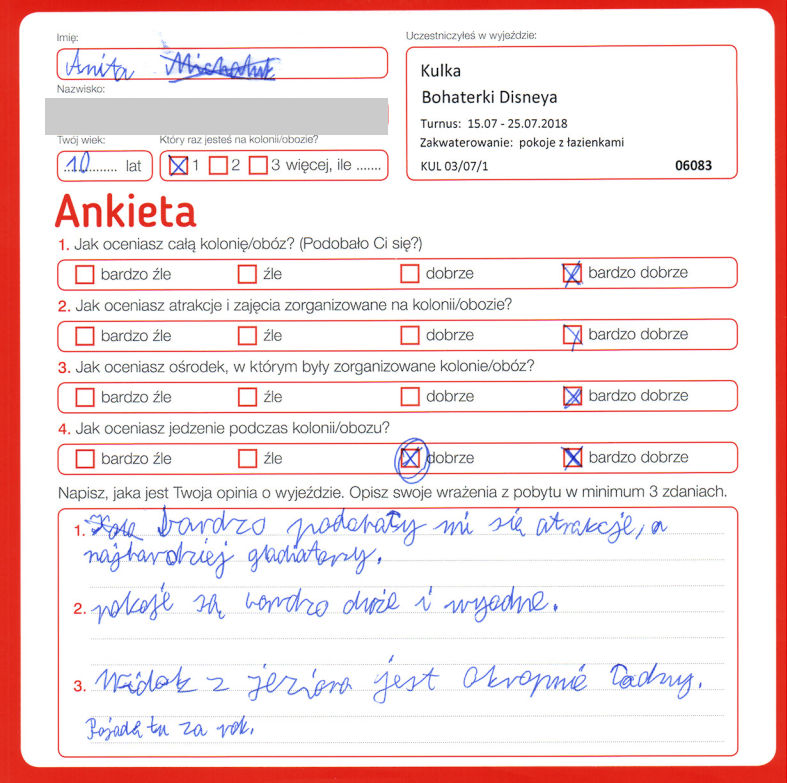 Imię:
Anita
Nazwisko:
Twój wiek:
10 lat
Który raz jesteś na kolonii/obozie?
1 2 3 więcej, ile .......
Uczestniczyłeś w wyjeździe:
Kulka
Bohaterki Disneya
Turnus: 15.07 - 25.07.2018
Zakwaterowanie: pokoje z łazienkami
KUL 03/07/1 06083
Ankieta
1. Jak oceniasz całą kolonię/obóz? (Podobało Ci się?)
bardzo źle źle dobrze bardzo dobrze
2. Jak oceniasz atrakcje i zajęcia zorganizowane na kolonii/obozie?
bardzo źle źle dobrze bardzo dobrze
3. Jak oceniasz ośrodek, w którym były zorganizowane kolonie/obóz?
bardzo źle źle dobrze bardzo dobrze
4. Jak oceniasz jedzenie podczas kolonii/obozu?
bardzo źle źle dobrze bardzo dobrze
Napisz, jaka jest Twoja opinia o wyjeździe. Opisz swoje wrażenia z pobytu w minimum 3 zdaniach.
1. bardzo podobały mi się atrakcje, a
najbardziej gladiatorzy.
2. pokoje są bardzo duże i wygodne.
3. Widok z jeziora jest okropnie ładny.
Pojadę tu za rok.